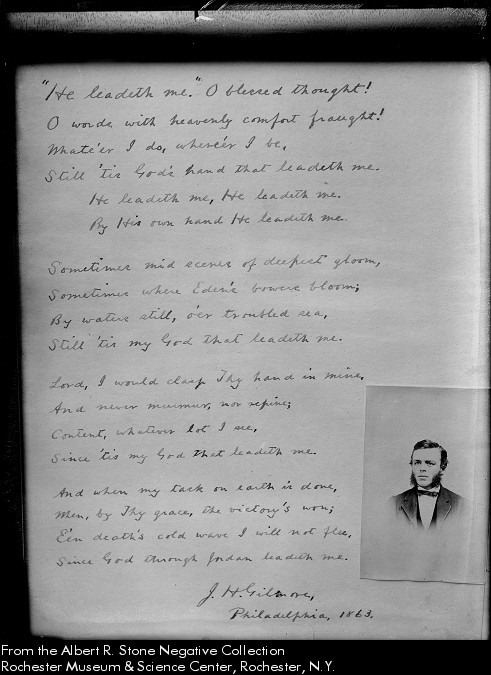 "He leadeth me." O blessed thought!
O words with heavenly comfort fraught!
Whate'er I do, where'er I be,
Still 'tis God's hand that leadeth me.
He leadeth me, He leadeth me.
By His own hand He leadeth me.
Sometimes mid scenes of deepest gloom,
Sometimes where Eden's bowers bloom;
By waters still, o'er troubled sea,
Still 'tis my God that leadeth me.
Lord, I would clasp Thy hand in mine,
And never murmur, nor repine;
Content, whatever lot I see,
Since 'tis my God that leadeth me.
And when my task on earth is done,
When, by Thy grace, the victory's won;
E'en death's cold wave I will not flee,
Since God through Jordan leadeth me.
J. H. Gilmore,
Philadelphia, 1863.
From the Albert R. Stone Negative Collection
Rochester Museum & Science Center, Rochester, N.Y.